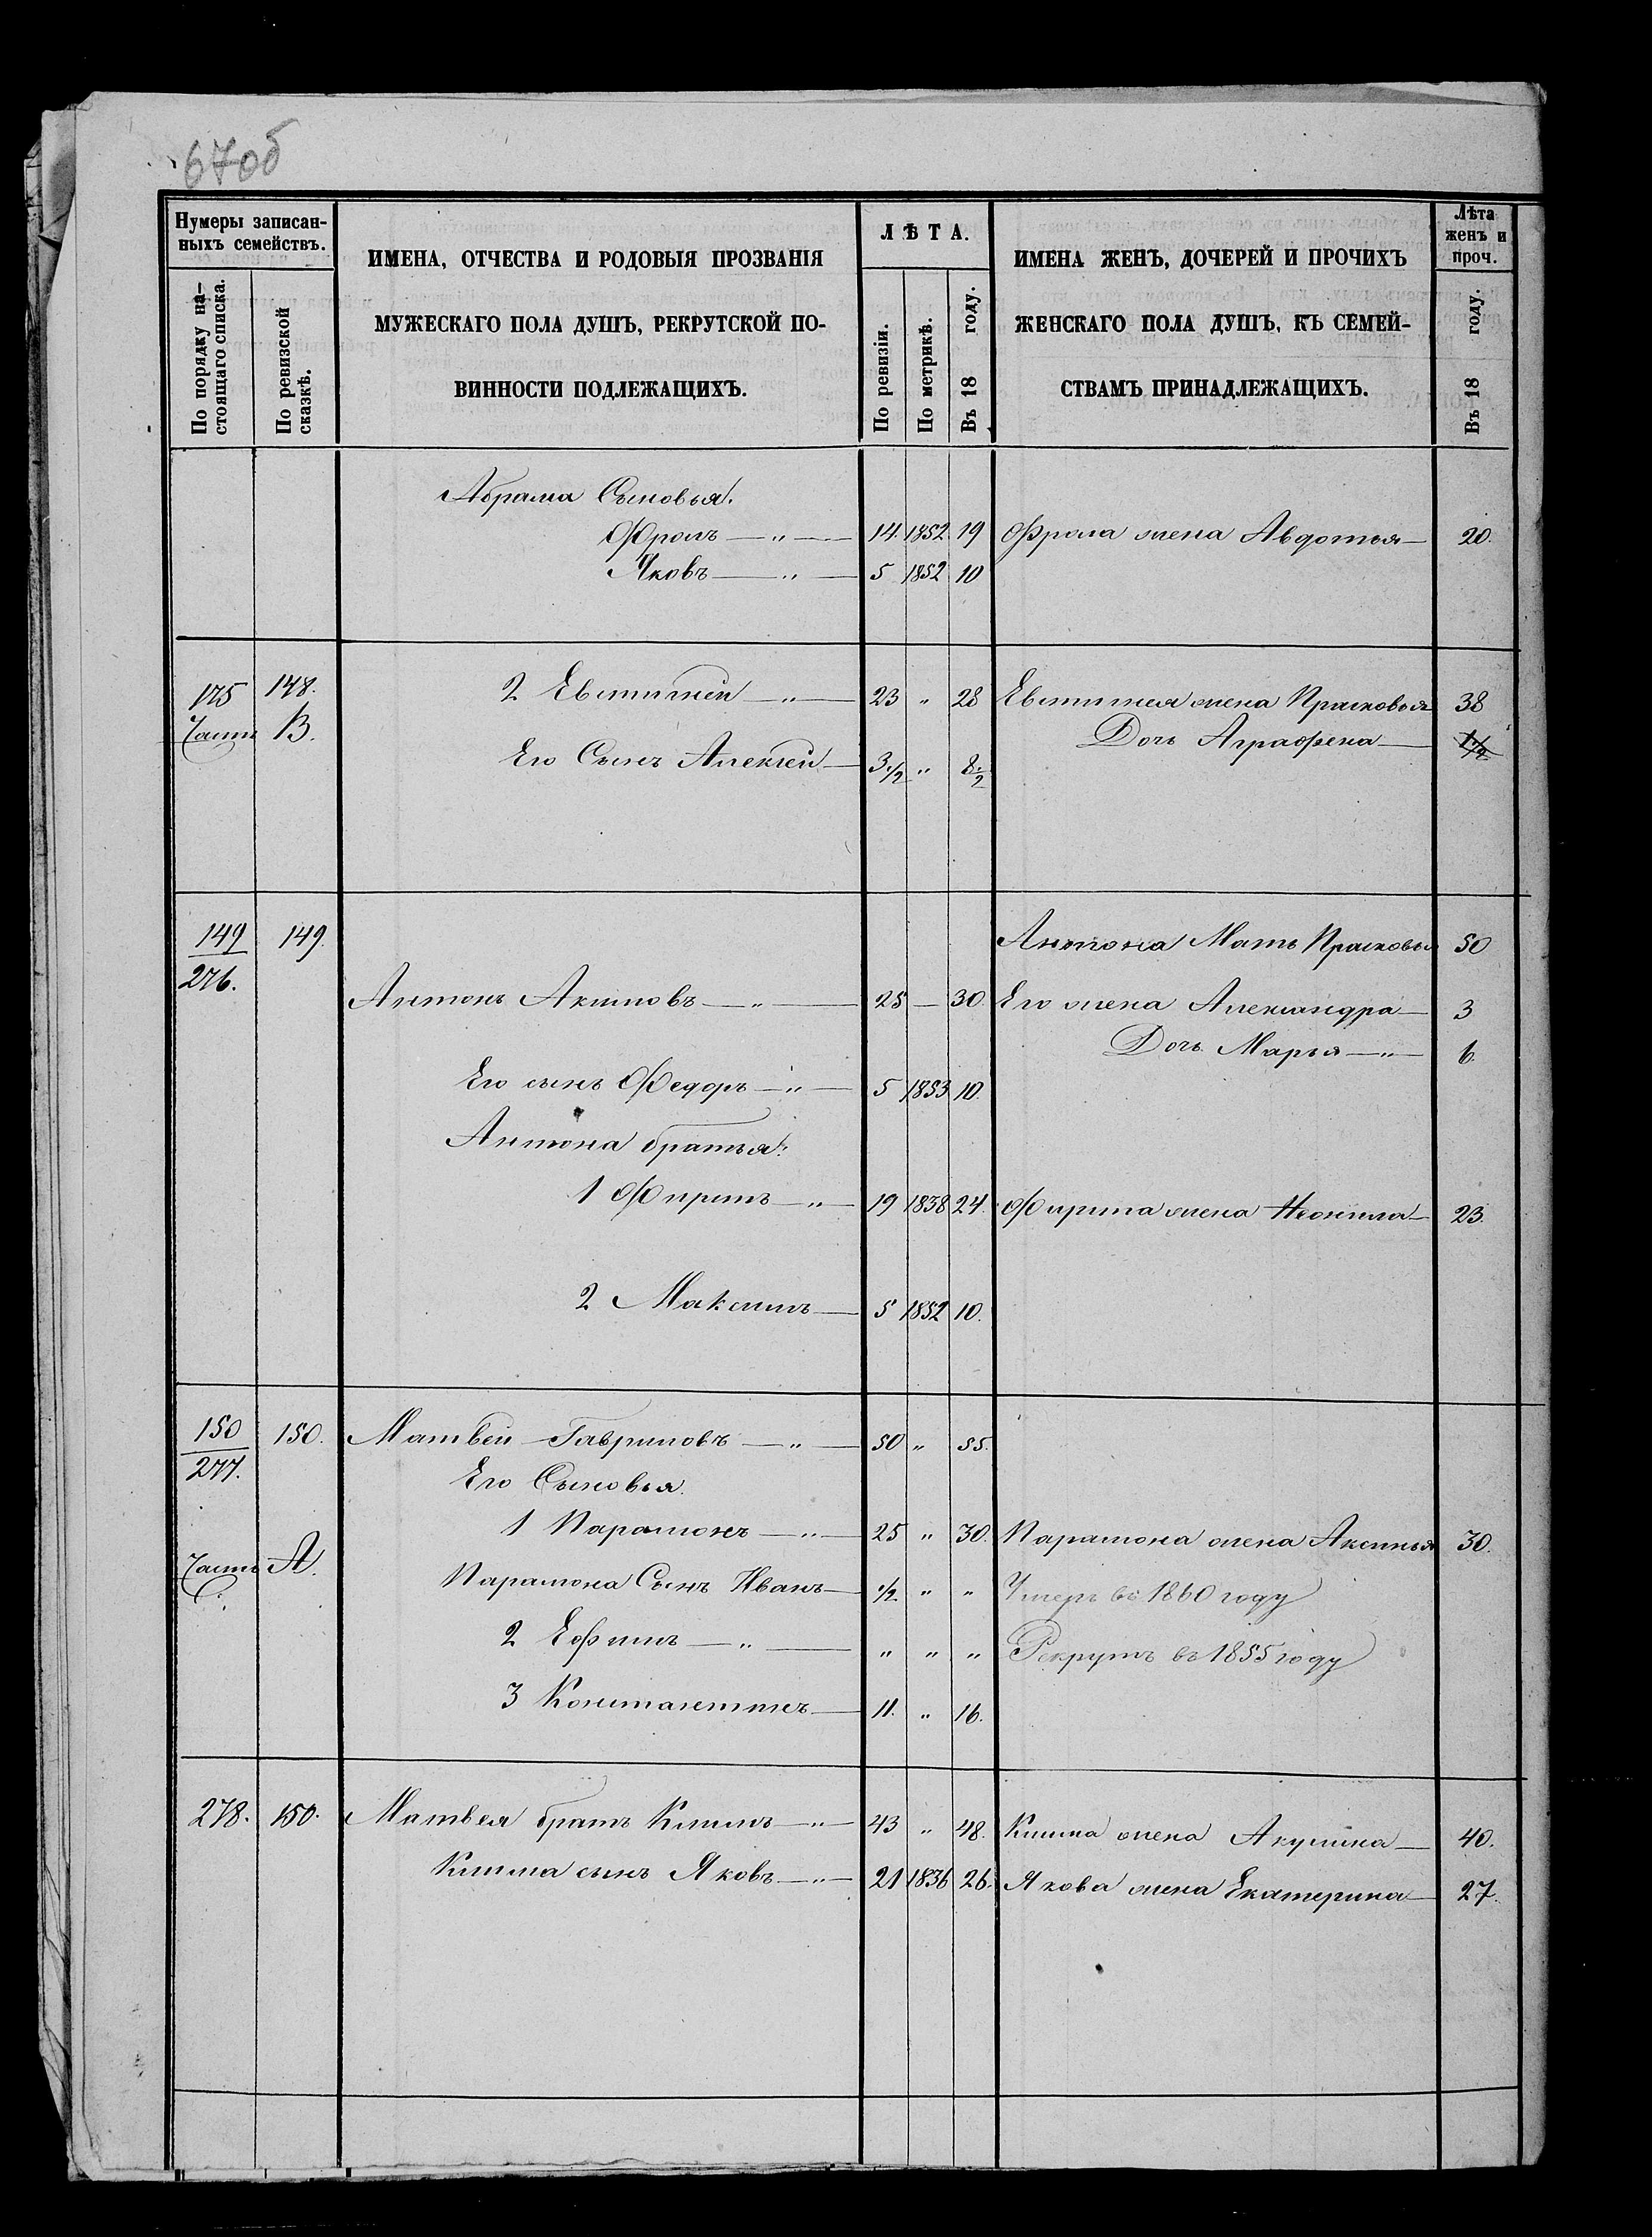 670б
Нумеры записан-
ныхъ семействъ.
По порядку на-
стоящаго списка.
По ревизской
сказкѣ.
ИМЕНА, ОТЧЕСТВА И РОДОВЫЯ ПРОЗВАНІЯ
МУЖЕСКАГО ПОЛА ДУШЪ, РЕКРУТСКОЙ ПО-
ВИННОСТИ ПОДЛЕЖАЩИХЪ.
ЛѢТА.
По ревизіи.
По метрикѣ.
Въ 18 году.
ИМЕНА ЖЕНЪ, ДОЧЕРЕЙ И ПРОЧИХЪ
ЖЕНСКАГО ПОЛА ДУШЪ, КЪ СЕМЕЙ-
СТВАМЪ ПРИНАДЛЕЖАЩИХЪ.
Лѣта
женъ и
проч.
Въ 18 году.
Абрама Сыновья.
Фролъ — „ — 14. 1852. 19 Фрола жена Авдотья — 20.
Яковъ — „ — 5 1852 10
175 148. 2 Евстигней — „ — 23 „ 28 Евстигнея жена Прасковья 38
Часть В. Дочь Аграфена — 1 1/2
Его Сынъ Алексей — 3 1/2 „ 8 1/2
149 149. Антона Мать Прасковья 50
276. Антонъ Акимовъ — „ — 25 — 30. Его жена Александра — 3
Дочь Марья — „ — 6.
Его сынъ Федоръ — „ — 5 1853 10.
Антона братья:
1 Фирсъ — „ — 19 1838 24. Фирса жена Неонила — 23.
2 Максимъ — 5 1852 10.
150 150. Матвей Гавриловъ — „ — 50 „ 55.
277. Его Сыновья.
1 Парамонъ — „ — 25 „ 30. Парамона жена Аксинья 30.
Часть А. Парамона Сынъ Иванъ — 1/2 „ „ Умеръ въ 1860 году
2 Ефимъ — „ — „ „ „ Рекрутъ въ 1855 году
3 Константинъ — 11. „ 16.
278. 150. Матвея братъ Климъ — „ — 43 „ 48. Клима жена Акулина — 40.
Клима сынъ Яковъ — „ — 21 1836 26. Якова жена Екатерина — 27.